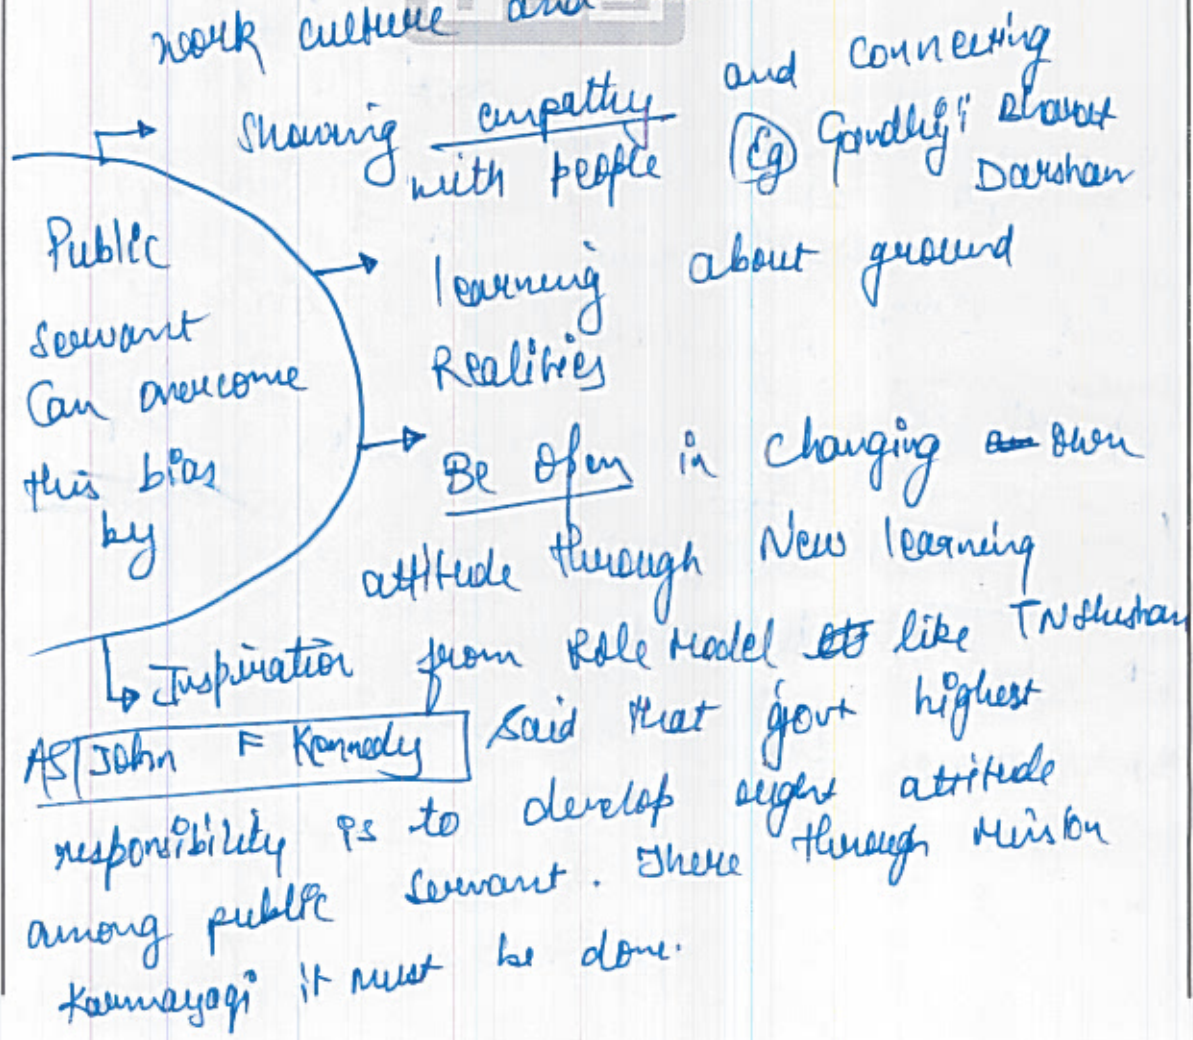 work culture and
Showing empathy and connecting
with people Eg Gandhiji Bharat
Darshan
Public
servant
Can overcome
this bias
by
learning about ground
Realities
Be open in changing own
attitude through New learning
Inspiration from Role Model like TN Sheshan
As John F Kennedy said that govt highest
responsibility is to develop right attitude
among public servant. There through Mission
Karmayogi it must be done.